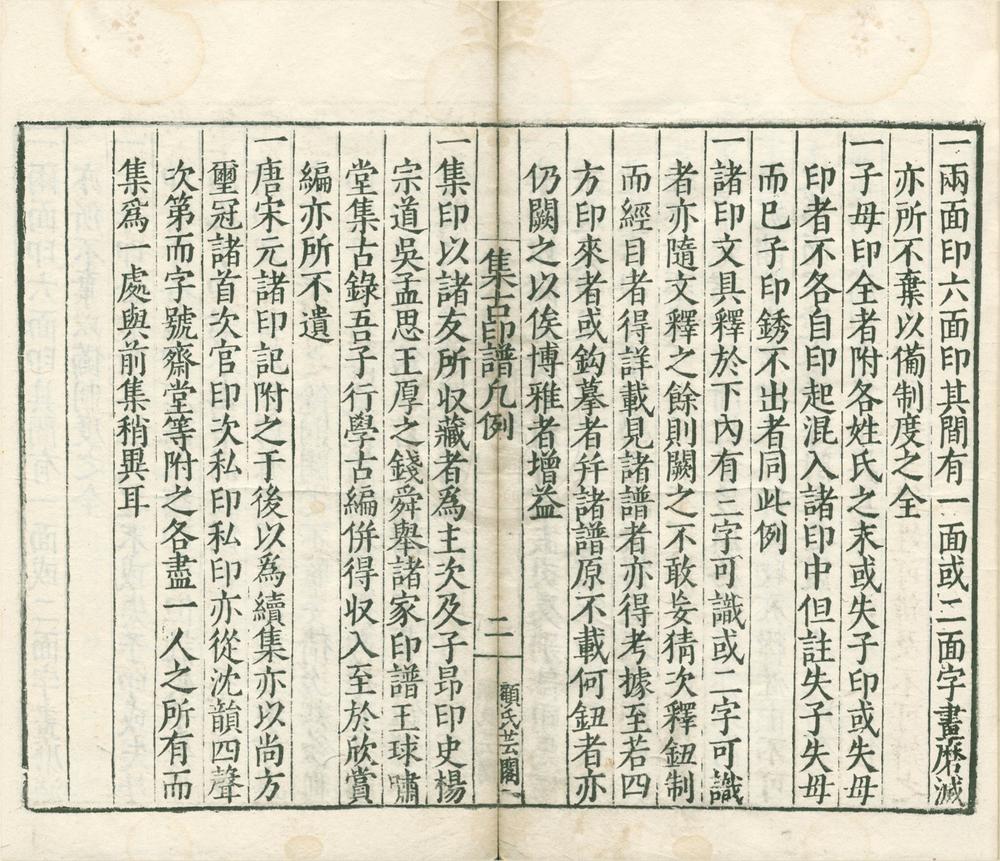 一兩面印六面印其間有一面或二面字畫磨滅
亦所不棄以備制度之全
一子母印全者附各姓氏之末或失子印或失母
印者不各自印起混入諸印中但註失子失母
而已子印銹不出者同此例
一諸印文具釋於下內有三字可識或二字可識
者亦隨文釋之餘則闕之不敢妄猜次釋鈕制
而經目者得詳載見諸譜者亦得考據至若四
方印來者或鈎摹者幷諸譜原不載何鈕者亦
仍闕之以俟博雅者增益
集古印譜凡例
二
顧氏芸閣
一集印以諸友所收藏者爲主次及子昂印史楊
宗道吳孟思王厚之錢舜舉諸家印譜王球嘯
堂集古錄吾子行學古編併得收入至於欣賞
編亦所不遺
一唐宋元諸印記附之于後以爲續集亦以尚方
璽冠諸首次官印次私印私印亦從沈韻四聲
次第而字號齋堂等附之各盡一人之所有而
集爲一處與前集稍異耳